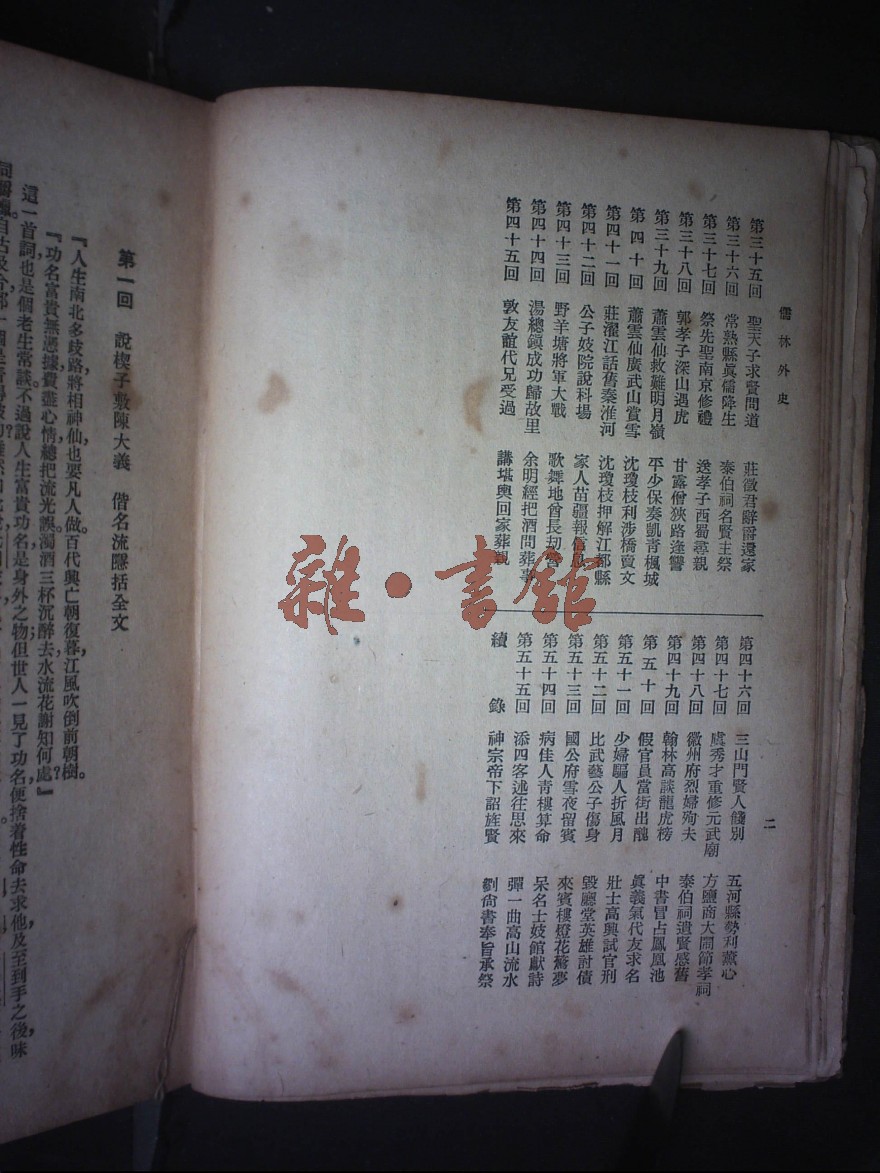 儒林外史
二
第三十五回 聖天子求賢問道 莊徵君辭爵還家
第三十六回 常熟縣眞儒降生 泰伯祠名賢主祭
第三十七回 祭先聖南京修禮 送孝子西蜀尋親
第三十八回 郭孝子深山遇虎 甘露僧狹路逢讐
第三十九回 蕭雲仙救難明月嶺 平少保奏凱青楓城
第四十回 蕭雲仙廣武山賞雪 沈瓊枝利涉橋賣文
第四十一回 莊濯江話舊秦淮河 沈瓊枝押解江都縣
第四十二回 公子妓院說科場 家人苗疆報信息
第四十三回 野羊塘將軍大戰 歌舞地酋長刧營
第四十四回 湯總鎭成功歸故里 余明經把酒問葬事
第四十五回 敦友誼代兄受過 講堪輿回家葬親
第四十六回 三山門賢人餞別 五河縣勢利薰心
第四十七回 虞秀才重修元武廟 方鹽商大鬧節孝祠
第四十八回 徽州府烈婦殉夫 泰伯祠遺賢感舊
第四十九回 翰林高談龍虎榜 中書冒占鳳凰池
第五十回 假官員當街出醜 眞義氣代友求名
第五十一回 少婦騙人折風月 壯士高興試官刑
第五十二回 比武藝公子傷身 毀廳堂英雄討債
第五十三回 國公府雪夜留賓 來賓樓燈花驚夢
第五十四回 病佳人青樓算命 呆名士妓館獻詩
第五十五回 添四客述往思來 彈一曲高山流水
續錄 神宗帝下詔旌賢 劉尙書奉旨承祭
雜·書館
第一回 說楔子敷陳大義 借名流隱括全文
『人生南北多歧路，將相神仙，也要凡人做。百代興亡朝復暮，江風吹倒前朝樹。
『功名富貴無憑據，費盡心情，總把流光誤。濁酒三杯沉醉去，水流花謝知何處？』
這一首詞，也是個老生常談。不過說人生富貴功名，是身外之物；但世人一見了功名，便捨着性命去求他，及至到手之後，味